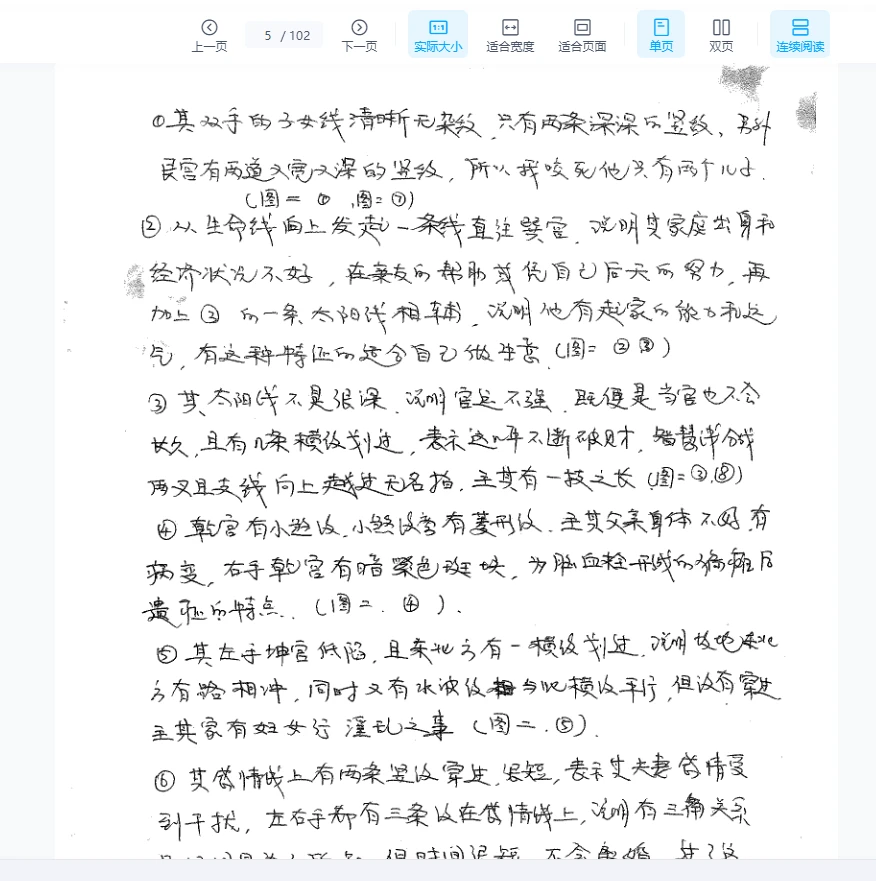 上一页 5 / 102 下一页 1:1 实际大小 适合宽度 适合页面 单页 双页 连续阅读
①其双手的子女线清晰无杂纹,只有两条深深的竖纹、另外
良宫有两道又宽又深的竖纹,所以我咬死他只有两个儿子.
(图二 ① ,图=⑦)
②从生命线向上发起一条线直往巽宫,说明其家庭出身和
经济状况不好,在亲友的帮助或凭自己后天的努力,再
加上③的一条太阳线相辅,说明他有起家的能力和运
气,有这种特征的适合自己做生意(图=②③)
③其太阳线不是很深,说明官运不强,既便是当官也不会
长久,且有几条横纹划过,表示这 年不断破财,智慧线分成
两叉且支线向上越过无名指,主其有一技之长(图=③.⑧)
④乾宫有小煞纹,小煞纹旁有菱形纹,主其父亲身体不好,有
病变,右手乾宫有暗紫色斑块,为脑血栓形成的偏瘫后
遗症的特点.(图二.④).
⑤其左手坤宫低陷,且东北方有一横纹划过,说明故宅东北
方有路相冲,同时又有水波纹 与此横纹平行,但没有穿过
主其家有妇女行淫乱之事(图二.⑤).
⑥其感情线上有两条竖纹穿过,很短,表示丈夫妻感情受
到干扰,左右手都有三条纹在感情线上,说明有三角关系
但时间很短,不会离婚,